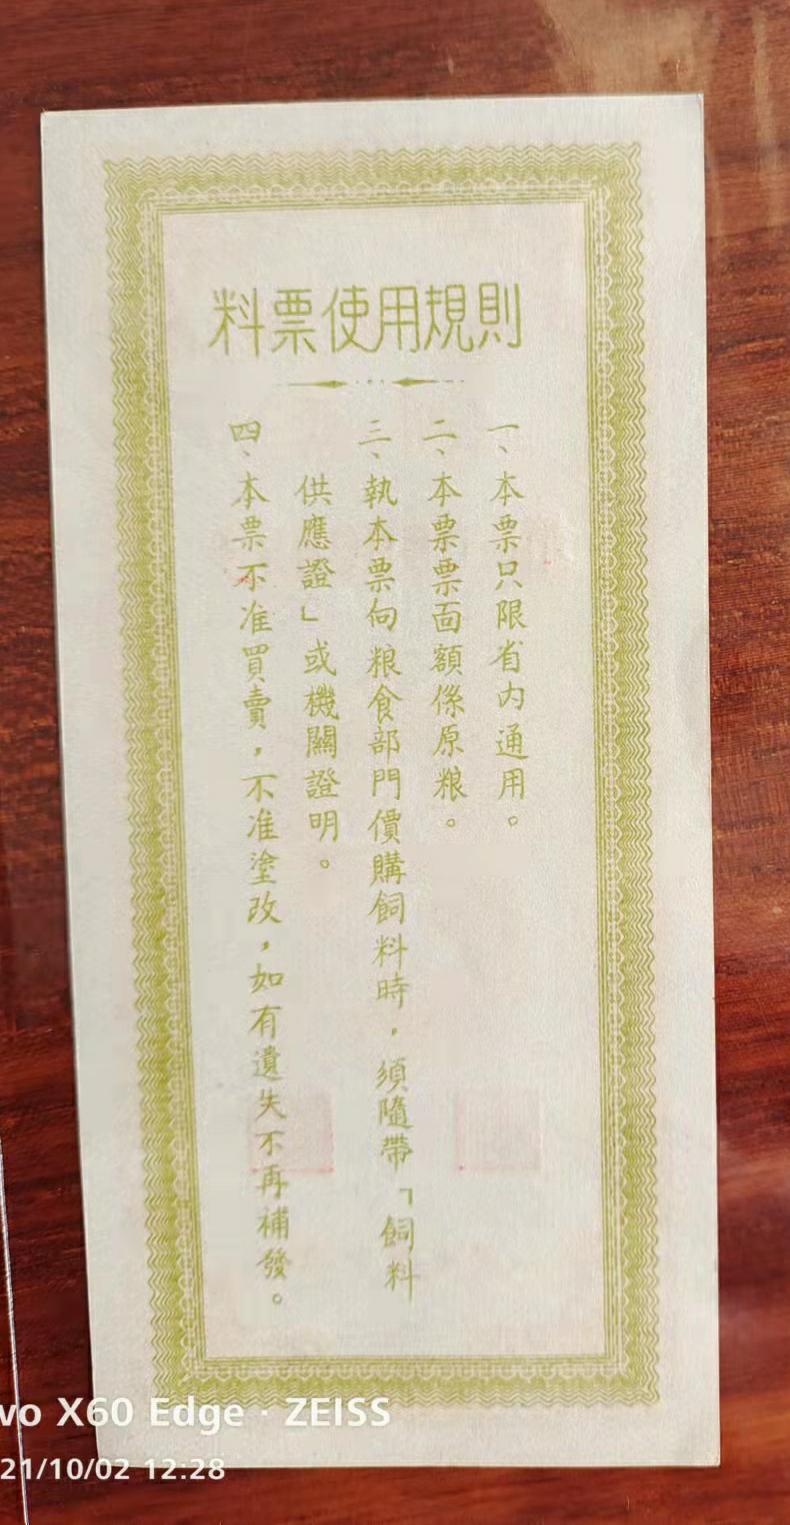 料票使用規則
一、本票只限省内通用。
二、本票票面額係原粮。
三、執本票向粮食部門價購飼料時，須隨帶「飼料
供應證」或機關證明。
四、本票不准買賣，不准塗改，如有遺失不再補發。
vo X60 Edge · ZEISS
21/10/02 12:28